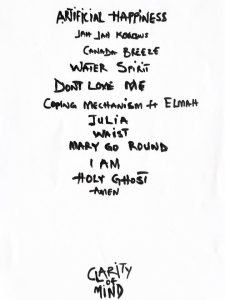 ARTIFICIAL HAPPINESS
JAH JAH KNOWS
CANADA BREEZE
WATER SPIRIT
DONT LOVE ME
COPING MECHANISM ft ELMAH
JULIA
WAIST
MARY GO ROUND
I AM
HOLY GHOST
AMEN
CLARITY
OF
MIND